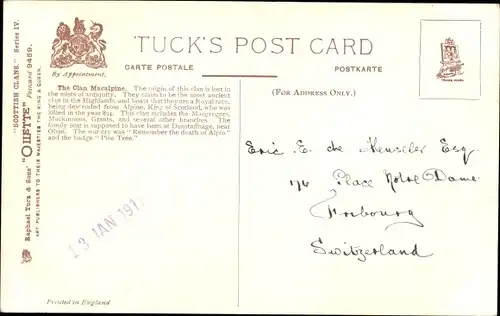 TUCK'S POST CARD
CARTE POSTALE
POSTKARTE
By Appointment.
(FOR ADDRESS ONLY.)
TRADE MARK
Raphael Tuck & Sons' "OILETTE" Postcard 9459.
"SCOTTISH CLANS." Series IV.
ART PUBLISHERS TO THEIR MAJESTIES THE KING & QUEEN
The Clan Macalpine. The origin of this clan is lost in
the mists of antiquity. They claim to be the most ancient
clan in the Highlands, and boast that they are a Royal race,
being descended from Alpine, King of Scotland, who was
killed in the year 834. This clan includes the Macgregors,
Mackinnons, Grants, and several other branches. The
family seat is supposed to have been at Dunstaffnage, near
Oban. The war cry was "Remember the death of Alpin"
and the badge "Pine Tree."
13 JAN 191
Eric E. de Heuseler Esq.
176 Place Notre Dame
Fribourg
Switzerland
Printed in England